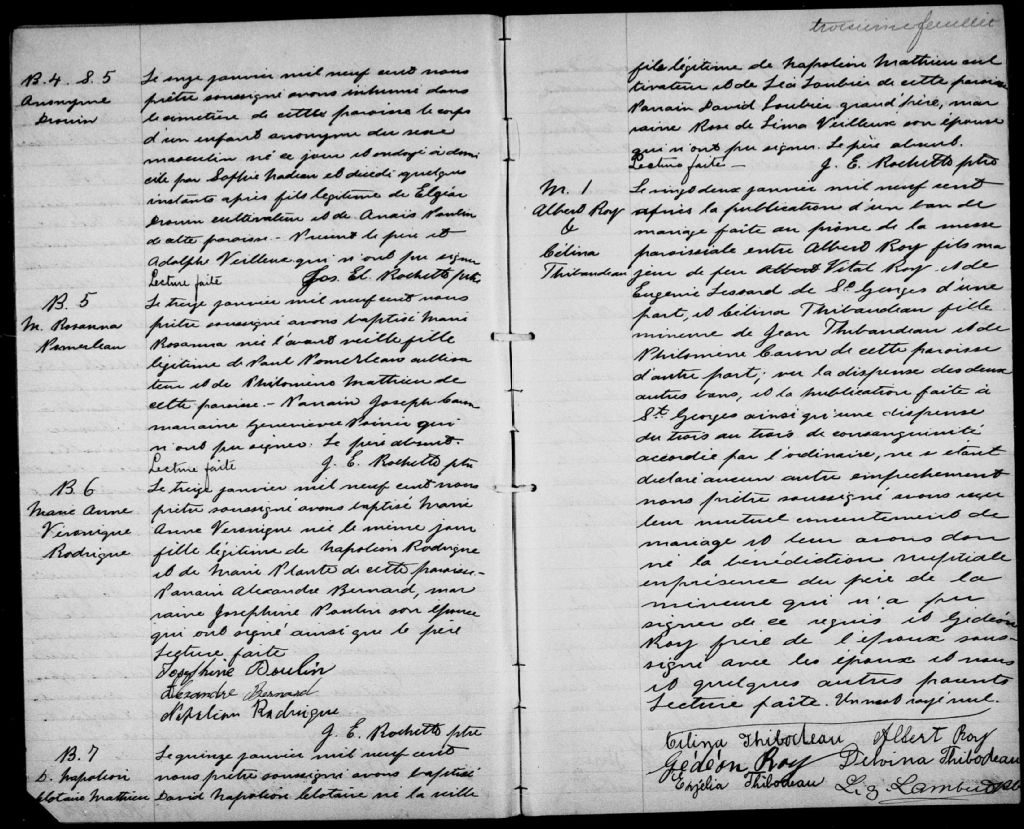 B.4. S.5
Anonyme
Drouin
Le onze janvier mil neuf cent nous
prêtre soussigné avons inhumé dans
le cimetière de cette paroisse le corps
d'un enfant anonyme du sexe
masculin né ce jour et ondoyé à domi
cile par Sophie Nadeau et décédé quelques
instants après fils légitime de Elzéar
Drouin cultivateur et de Anaïs Poulin
d'cette paroisse. - Présent le père et
Adolph Veilleux qui n'ont pu signer
Lecture faite Jos. El. Rochette ptre
B. 5
M. Rosanna
Pomerleau
Le treize janvier mil neuf cent nous
prêtre soussigné avons baptisé Marie
Rosanna née l'avant veille fille
légitime de Paul Pomerleau cultiva
teur et de Philomène Mathieu de
cette paroisse. - Parrain Joseph Caron
marraine Geneviève Poirier qui
n'ont pu signer. Le père absent.
Lecture faite J. E. Rochette ptre
B. 6
Marie Anne
Véronique
Rodrigue
Le treize janvier mil neuf cent nous
prêtre soussigné avons baptisé Marie
Anne Véronique née le même jour
fille légitime de Napoléon Rodrigue
et de Marie Plante de cette paroisse -
Parrain Alexandre Bernard, mar
raine Joséphine Poulin son épouse
qui ont signé ainsi que le père
Lecture faite
Josephine Poulin
Alexandre Bernard
Napolion Rodrigue
J. E. Rochette ptre
B. 7
D. Napoléon
Clotaire Mathieu
Le quinze janvier mil neuf cent
nous prêtre soussigné avons baptisé
David Napoléon Clotaire né la veille
troisième feuillet
fils légitime de Napoléon Mathieu cul
tivateur et de Léa Loubier de cette paroisse
Parrain David Loubier grand'père, mar
raine Rose de Lima Veilleux son épouse
qui n'ont pu signer. Le père absent.
Lecture faite - J. E. Rochette ptre
M. 1
Albert Roy
&
Célina
Thibaudeau
Le vingt deux janvier mil neuf cent
après la publication d'un ban de
mariage faite au prône de la messe
paroissiale entre Albert Roy fils ma
jeur de feu Albert Vital Roy et de
Eugénie Lessard de St Georges d'une
part, et Célina Thibaudeau fille
mineure de Jean Thibaudeau et de
Philomène Caron de cette paroisse
d'autre part; vu la dispense des deux
autres bans, et la publication faite à
St. Georges ainsi qu'une dispense
du trois au trois de consanguinité
accordée par l'ordinaire, ne s'étant
déclaré aucun autre empêchement
nous prêtre soussigné avons reçu
leur mutuel consentement de
mariage et leur avons don
né la bénédiction nuptiale
en présence du père de la
mineure qui n'a pu
signer de ce requis et Gédéon
Roy frère de l'époux sous-
signé avec les époux et nous
et quelques autres parents
Lecture faite. Un mot rayé nul.
Célina Thibodeau Albert Roy
Gédéon Roy Delvina Thibodeau
Enzélia Thibodeau Lambert